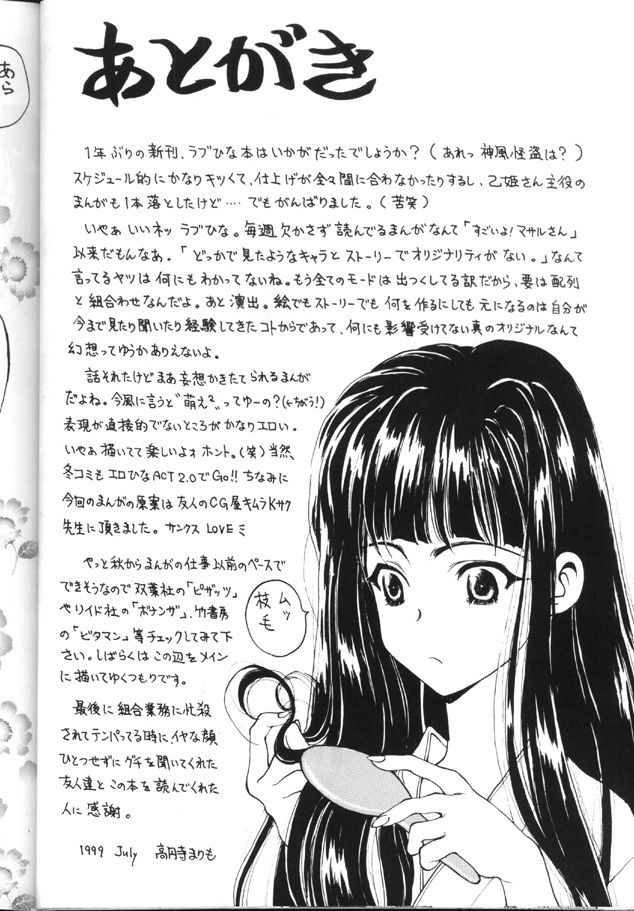 あとがき
1年ぶりの新刊、ラブひな本はいかがだったでしょうか？(あれっ神風怪盗は？)
スケジュール的にかなりキツくて、仕上げが全々間に合わなかったりするし、乙姫さん主役の
まんがも1本落としたけど‥‥でもがんばりました。(苦笑)
いやぁいいネッラブひな。毎週欠かさず読んでるまんがなんて「すごいよ!マサルさん」
以来だもんなあ.「どっかで見たようなキャラとストーリーでオリジナリティがない。」なんて
言ってるヤツは何にもわかってないね。もう全てのモードは出つくしてる訳だから、要は配列
と組合わせなんだよ。あと演出。絵でもストーリーでも何を作るにしても元になるのは自分が
今まで見たり聞いたり経験してきたコトからであって、何にも影響受けてない真のオリジナルなんて
幻想ってゆうかありえないよ。
話それたけどまあ妄想かきたてられるまんが
だよね。今風に言うと"萌え²"ってゆーの？(←ちがう!)
表現が直接的でないところがかなりエロい.
いやぁ描いてて楽しいよォホント。(笑)当然、
冬コミもエロひなACT2.0でGo!!ちなみに
今回のまんがの原案は友人のCG屋キムラKサク
先生に頂きました。サンクスLOVEミ
やっと秋からまんがの仕事以前のペースで
できそうなので双葉社の「ピザッツ」
やリイド社の「ボナンザ」、竹書房
の「ビタマン」等チェックしてみて下
さい。しばらくはこの辺をメイン
に描いてゆくつもりです。
最後に組合業務に忙殺
されてテンパってる時に、イヤな顔
ひとつせずにグチを聞いてくれた
友人達とこの本を読んでくれた
人に感謝。
1999 July 高円寺まりも
ムッ
枝毛
あら